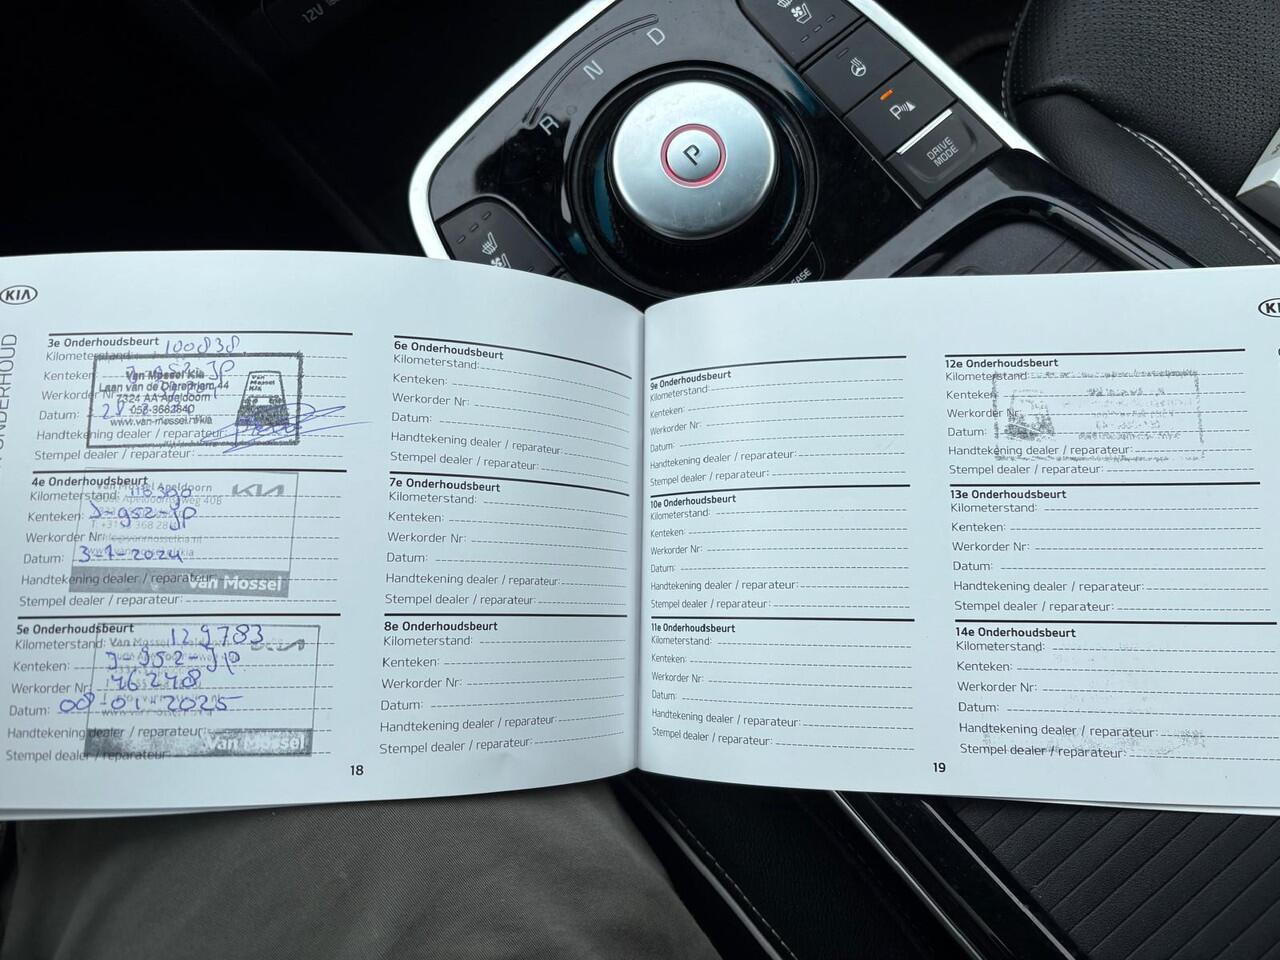 12V
R
N
D
P
P
DRIVE
MODE
KIA
ONDERHOUD
3e Onderhoudsbeurt
Kilometerstand: 100838
Kenteken:
Werkorder Nr:
Datum: 28
Handtekening dealer / reparateur:
Stempel dealer / reparateur:
Van Mossel Kia
Laan van de Dierenriem 44
7324 AA Apeldoorn
www.van-mossel.nl/kia
Van
Mossel
Kia
4e Onderhoudsbeurt
Kilometerstand:
Kenteken: J-952-JP
Werkorder Nr:
Datum: 3-1-2024
Handtekening dealer / reparateur:
Stempel dealer / reparateur:
Van Mossel Apeldoorn
KIA
Van Mossel
5e Onderhoudsbeurt
Kilometerstand: 129783
Kenteken: J-952-JP
Werkorder Nr: 46248
Datum: 08-01-2025
Handtekening dealer / reparateur:
Stempel dealer / reparateur:
KIA
Van Mossel
6e Onderhoudsbeurt
Kilometerstand:
Kenteken:
Werkorder Nr:
Datum:
Handtekening dealer / reparateur:
Stempel dealer / reparateur:
7e Onderhoudsbeurt
Kilometerstand:
Kenteken:
Werkorder Nr:
Datum:
Handtekening dealer / reparateur:
Stempel dealer / reparateur:
8e Onderhoudsbeurt
Kilometerstand:
Kenteken:
Werkorder Nr:
Datum:
Handtekening dealer / reparateur:
Stempel dealer / reparateur:
18
9e Onderhoudsbeurt
Kilometerstand:
Kenteken:
Werkorder Nr:
Datum:
Handtekening dealer / reparateur:
Stempel dealer / reparateur:
10e Onderhoudsbeurt
Kilometerstand:
Kenteken:
Werkorder Nr:
Datum:
Handtekening dealer / reparateur:
Stempel dealer / reparateur:
11e Onderhoudsbeurt
Kilometerstand:
Kenteken:
Werkorder Nr:
Datum:
Handtekening dealer / reparateur:
Stempel dealer / reparateur:
12e Onderhoudsbeurt
Kilometerstand:
Kenteken:
Werkorder Nr:
Datum:
Handtekening dealer / reparateur:
Stempel dealer / reparateur:
13e Onderhoudsbeurt
Kilometerstand:
Kenteken:
Werkorder Nr:
Datum:
Handtekening dealer / reparateur:
Stempel dealer / reparateur:
14e Onderhoudsbeurt
Kilometerstand:
Kenteken:
Werkorder Nr:
Datum:
Handtekening dealer / reparateur:
Stempel dealer / reparateur:
19